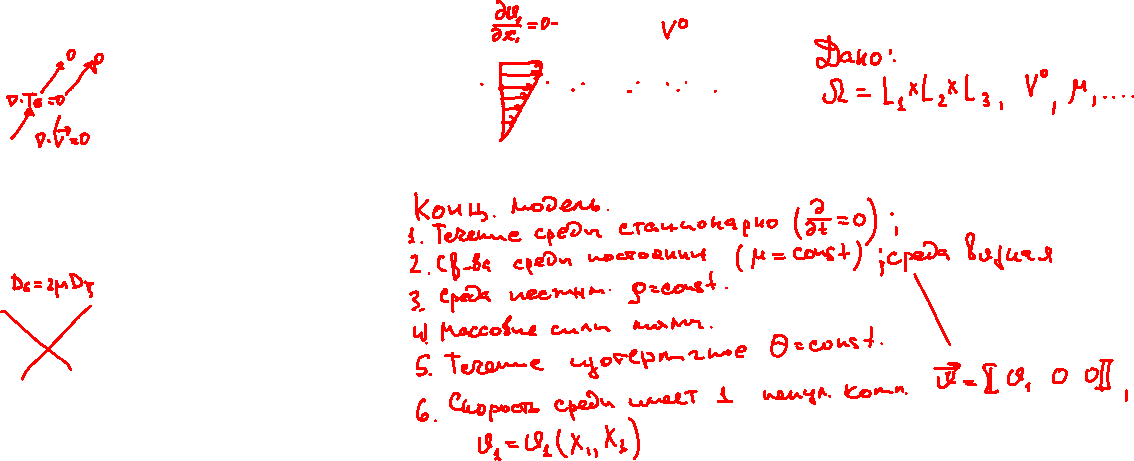 ∂υ₁/∂x₁ = 0
V⁰
Дано:
Ω = L₁×L₂×L₃, V⁰, μ, ....
0 0
∇·Tσ = 0
∇·V⃗ = 0
Конц. модель.
1. Течение среды стационарно (∂/∂t = 0);
2. Св-ва среды постоянны (μ = const); среда вязкая
3. Среда несжим. ρ = const.
4. Массовые силы малы.
5. Течение изотермичное Θ = const.
6. Скорость среды имеет 1 ненул. комп. υ⃗ = [[υ₁ 0 0]],
υ₁ = υ₁(x₁, x₂)
Dσ = 2μDξ